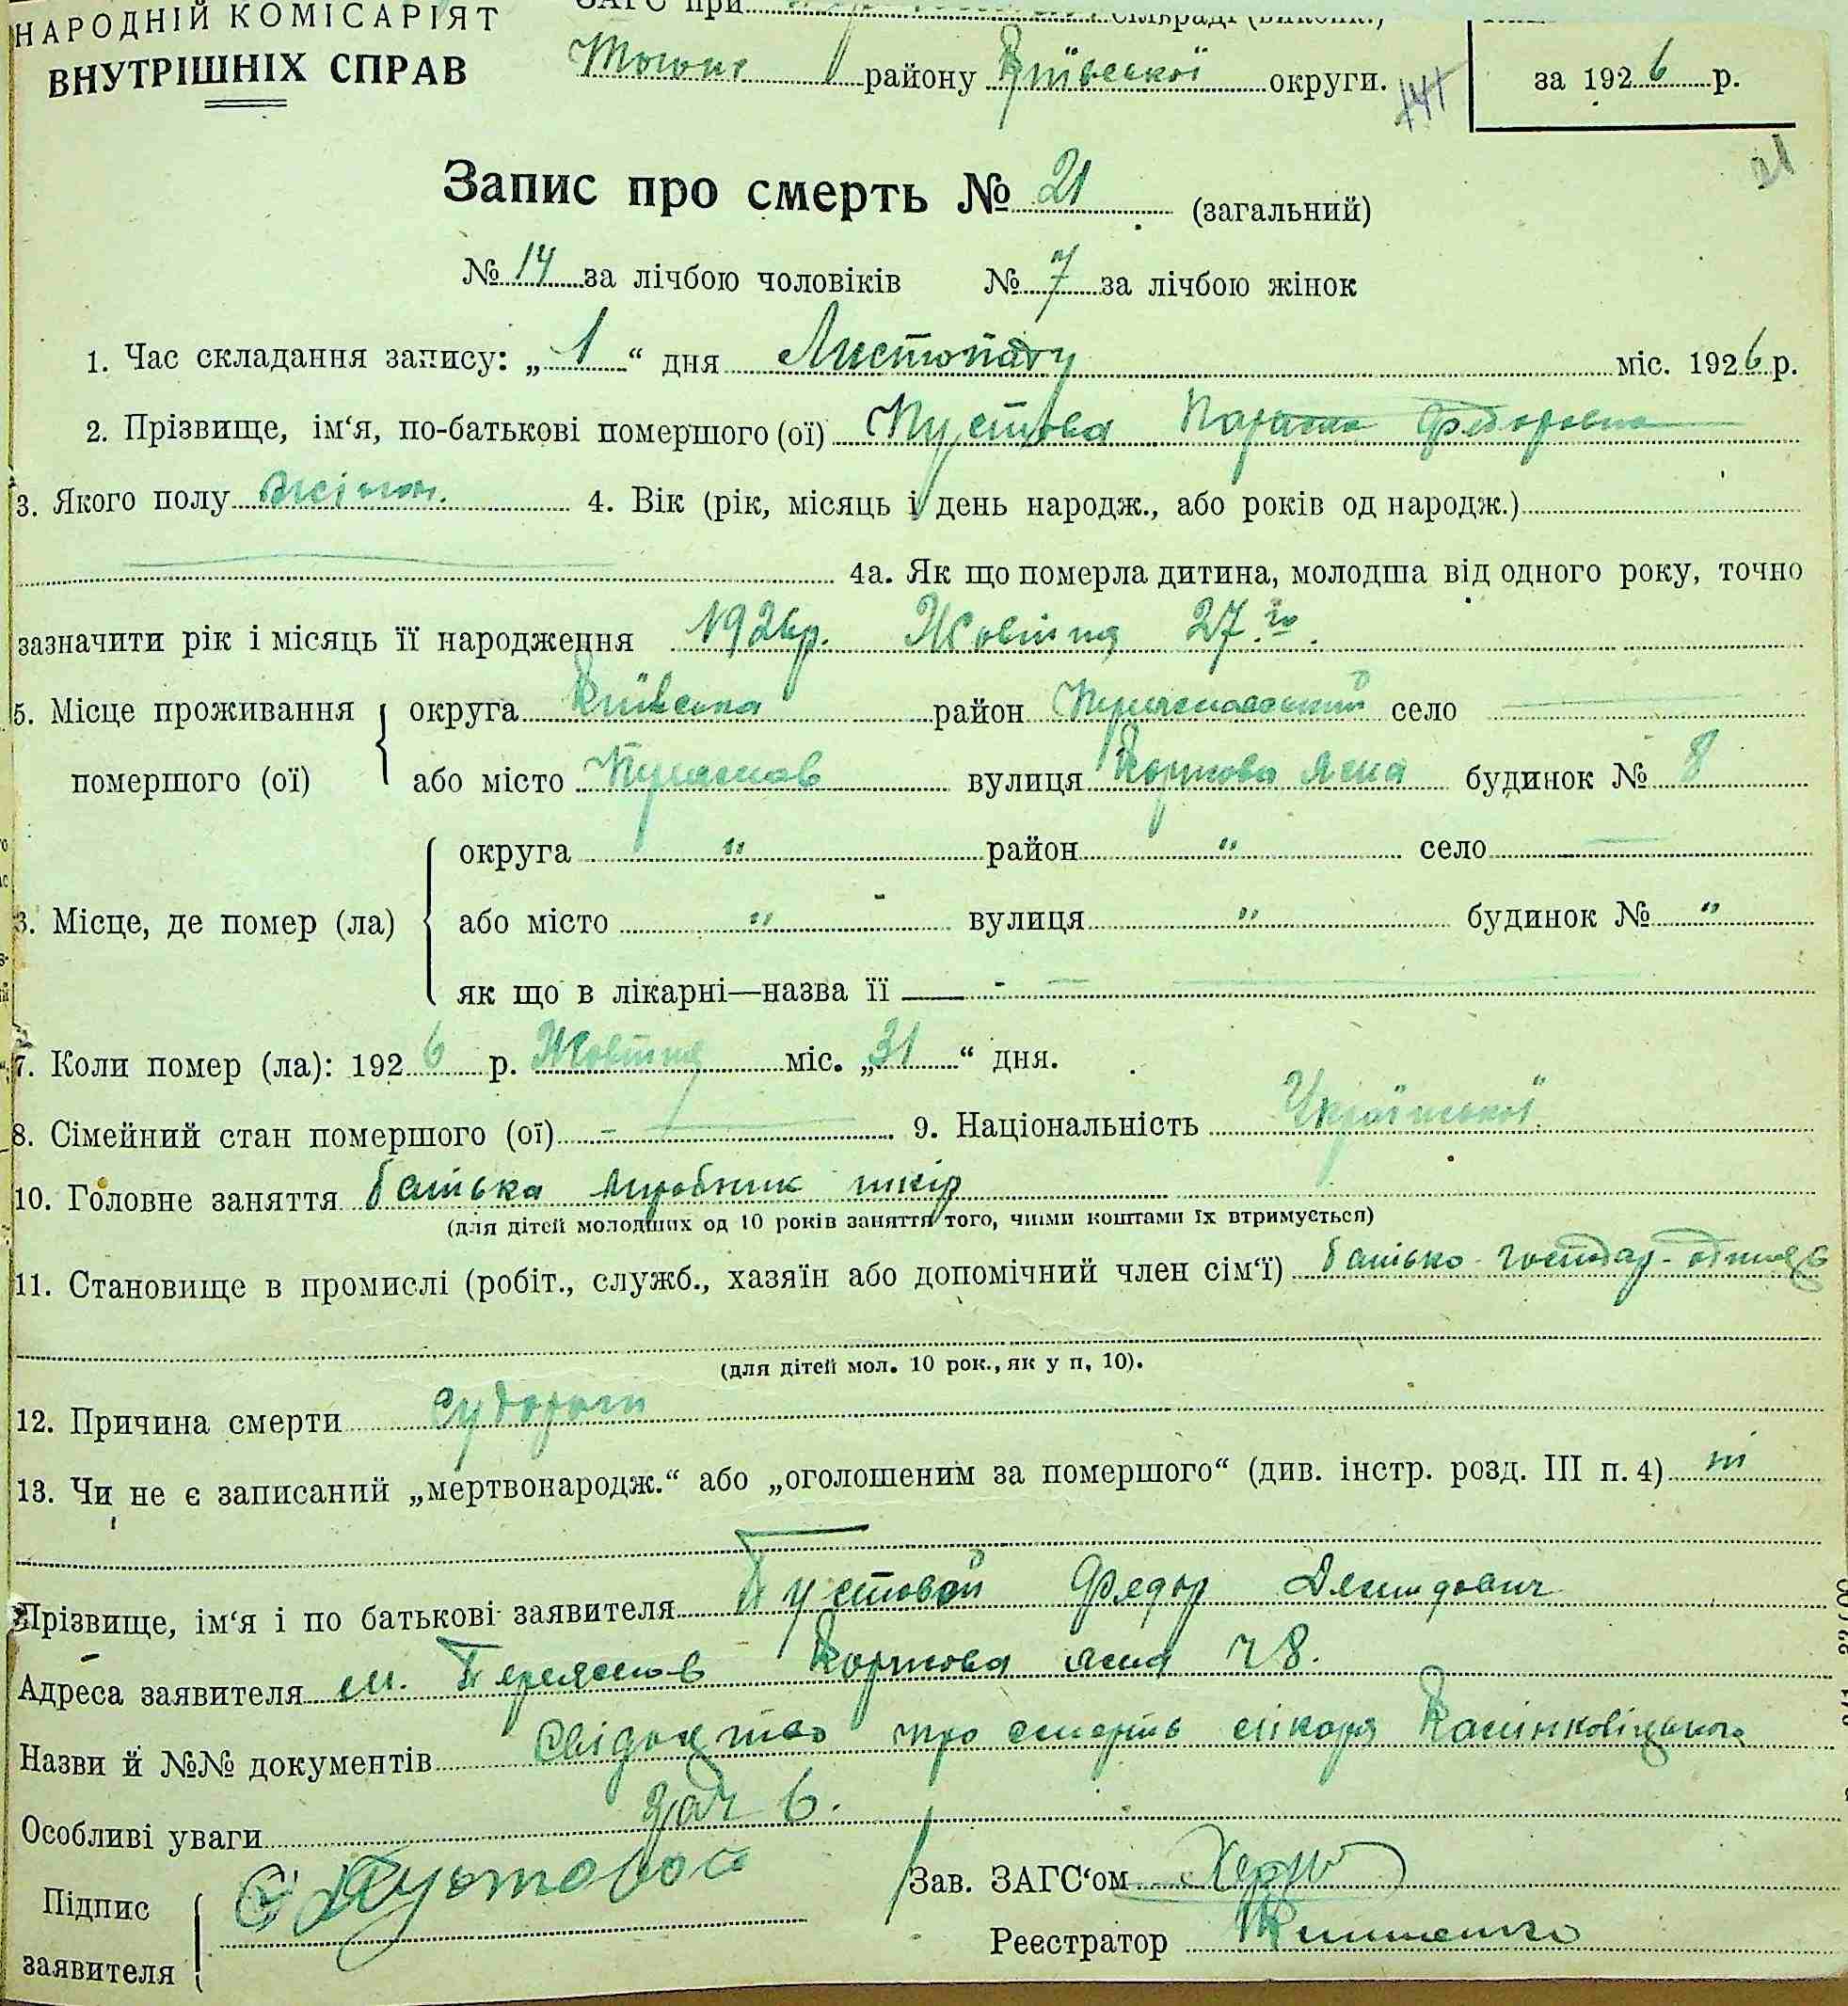 НАРОДНІЙ КОМІСАРІЯТ
ВНУТРІШНІХ СПРАВ
ЗАГС при сільраді (виконк.)
району Київської округи.
за 1926 р.
141
21
Запис про смерть № 21 (загальний)
№ 14 за лічбою чоловіків № 7 за лічбою жінок
1. Час складання запису: „1“ дня Листопаду міс. 1926 р.
2. Прізвище, ім‘я, по-батькові помершого (ої) Пустова Параска Федоровна
3. Якого полу жіноч. 4. Вік (рік, місяць і день народж., або років од народж.)
4а. Як що померла дитина, молодша від одного року, точно
зазначити рік і місяць її народження 1926р. Жовтня 27го.
5. Місце проживання помершого (ої) округа Київська район Переяславський село
або місто Переяслав вулиця будинок № 8
Місце, де помер (ла) округа " район " село
або місто " вулиця " будинок № "
як що в лікарні—назва її —
7. Коли помер (ла): 1926 р. Жовтня міс. „31“ дня.
8. Сімейний стан помершого (ої) - 9. Національність Української
10. Головне заняття батька виробник шкір
(для дітей молодших од 10 років заняття того, чиїми коштами їх втримується)
11. Становище в промислі (робіт., служб., хазяїн або допомічний член сім‘ї) батько господар
(для дітей мол. 10 рок., як у п, 10).
12. Причина смерти судороги
13. Чи не є записаний „мертвонародж.“ або „оголошеним за помершого“ (див. інстр. розд. III п. 4) ні
Прізвище, ім‘я і по батькові заявителя Пустовой Федор Демидович
Адреса заявителя м. Переяслав ч 8.
Назви й №№ документів Свідоцтво про смерть лікаря
Особливі уваги
Підпис заявителя Пустовой
Зав. ЗАГС‘ом
Реєстратор